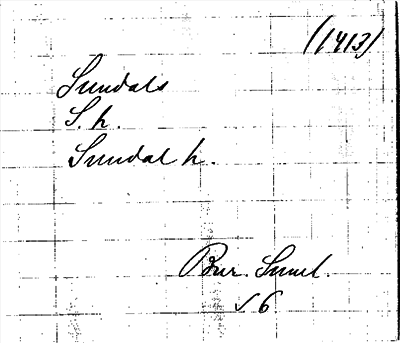 (1413)
Sundals
S. h.
Sundal h.
Bur. Sunl.
s 6